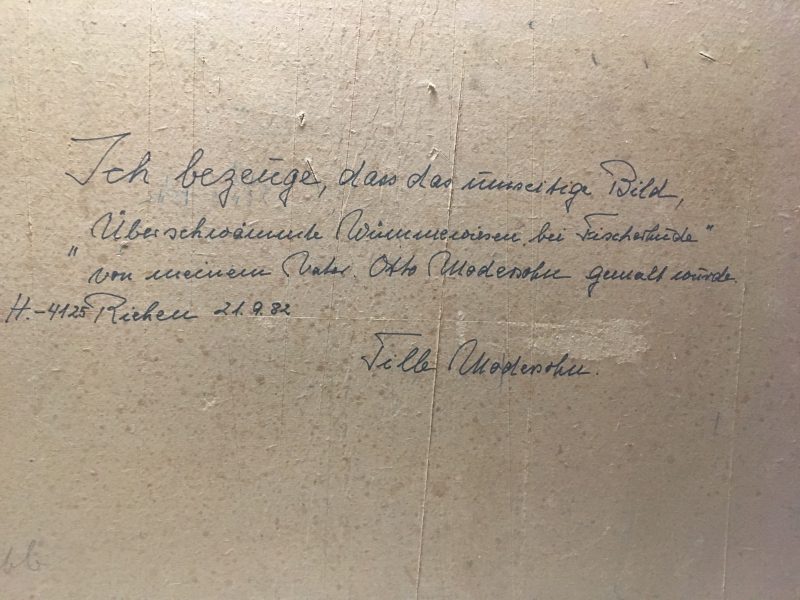 Ich bezeuge, dass das umseitige Bild,
"Überschwämmte Wümmewiesen bei Fischerhude"
von meinem Vater. Otto Modersohn gemalt wurde.
H.-4125 Riehen 21.9.82
Tille Modersohn.